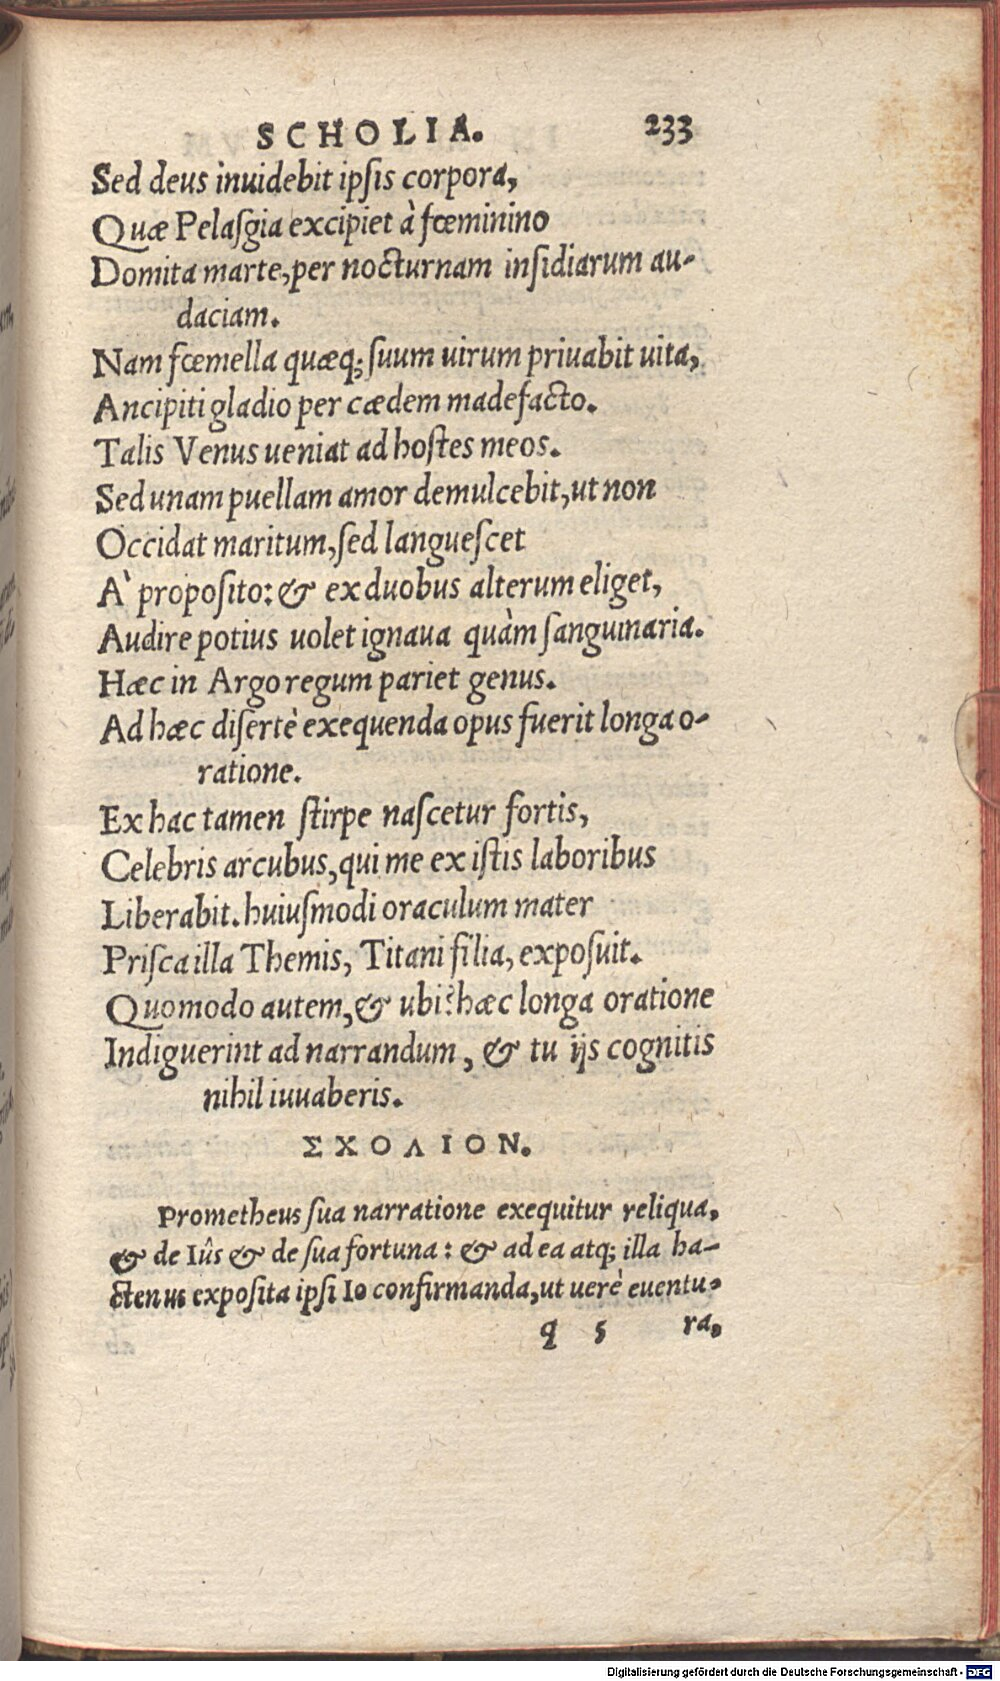 SCHOLIA. 233
Sed deus inuidebit ipſis corpora,
Quæ Pelaſgia excipiet à fœminino
Domita marte, per nocturnam inſidiarum au-
daciam.
Nam fœmella quæq; ſuum uirum priuabit uita,
Ancipiti gladio per cædem madefacto.
Talis Venus ueniat ad hoſtes meos.
Sed unam puellam amor demulcebit, ut non
Occidat maritum, ſed langueſcet
A` propoſito: & ex duobus alterum eliget,
Audire potius uolet ignaua quàm ſanguinaria.
Hæc in Argo regum pariet genus.
Ad hæc diſertè exequenda opus fuerit longa o-
ratione.
Ex hac tamen ſtirpe naſcetur fortis,
Celebris arcubus, qui me ex iſtis laboribus
Liberabit. huiuſmodi oraculum mater
Priſca illa Themis, Titani filia, expoſuit.
Quomodo autem, & ubi? hæc longa oratione
Indiguerint ad narrandum, & tu ijs cognitis
nihil iuuaberis.
ΣΧΟΛΙΟΝ.
Prometheus ſua narratione exequitur reliqua,
& de Iûs & de ſua fortuna: & ad ea atq; illa ha-
ctenus expoſita ipſi Io confirmanda, ut uerè euentu-
q 5 ra,
Digitalisierung gefördert durch die Deutsche Forschungsgemeinschaft - DFG